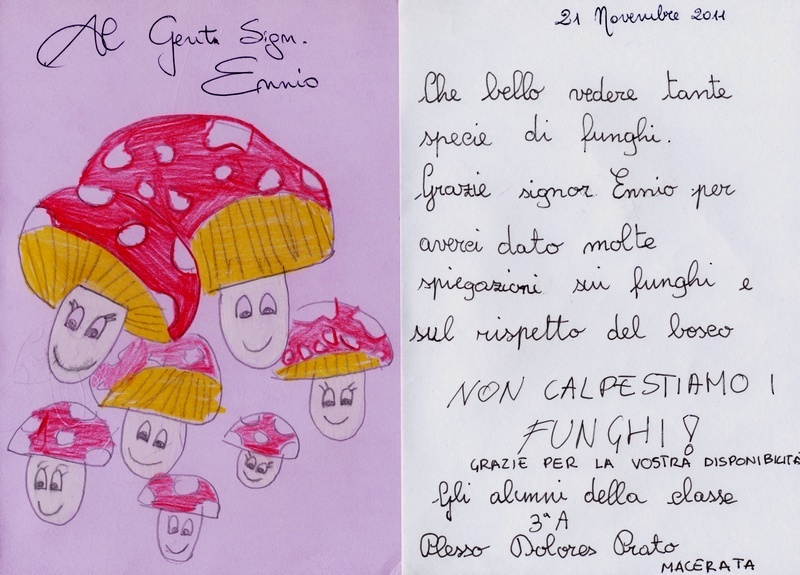 Al Gent. Sign.
Ennio
21 Novembre 2011
Che bello vedere tante
specie di funghi.
Grazie signor Ennio per
averci dato molte
spiegazioni sui funghi e
sul rispetto del bosco
NON CALPESTIAMO I
FUNGHI!
GRAZIE PER LA VOSTRA DISPONIBILITÀ
Gli alunni della classe
3ª A
Plesso Dolores Prato
MACERATA